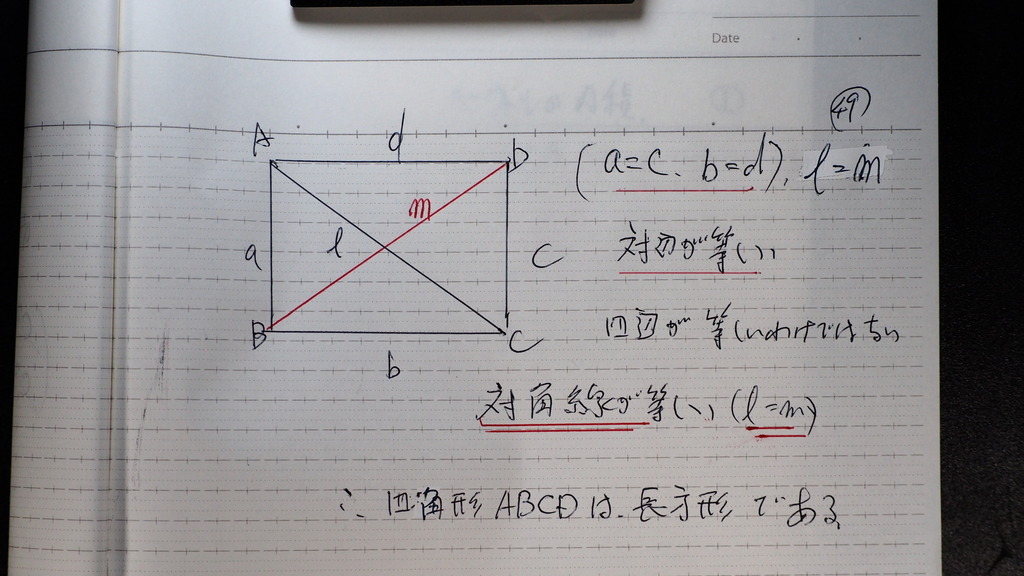 Date
49
A
d
D
(a=c、b=d)、l=m
m
a
l
c
対辺が等しい
B
C
四辺が等しいわけではない
b
対角線が等しい (l=m)
∴ 四角形ABCDは、長方形である